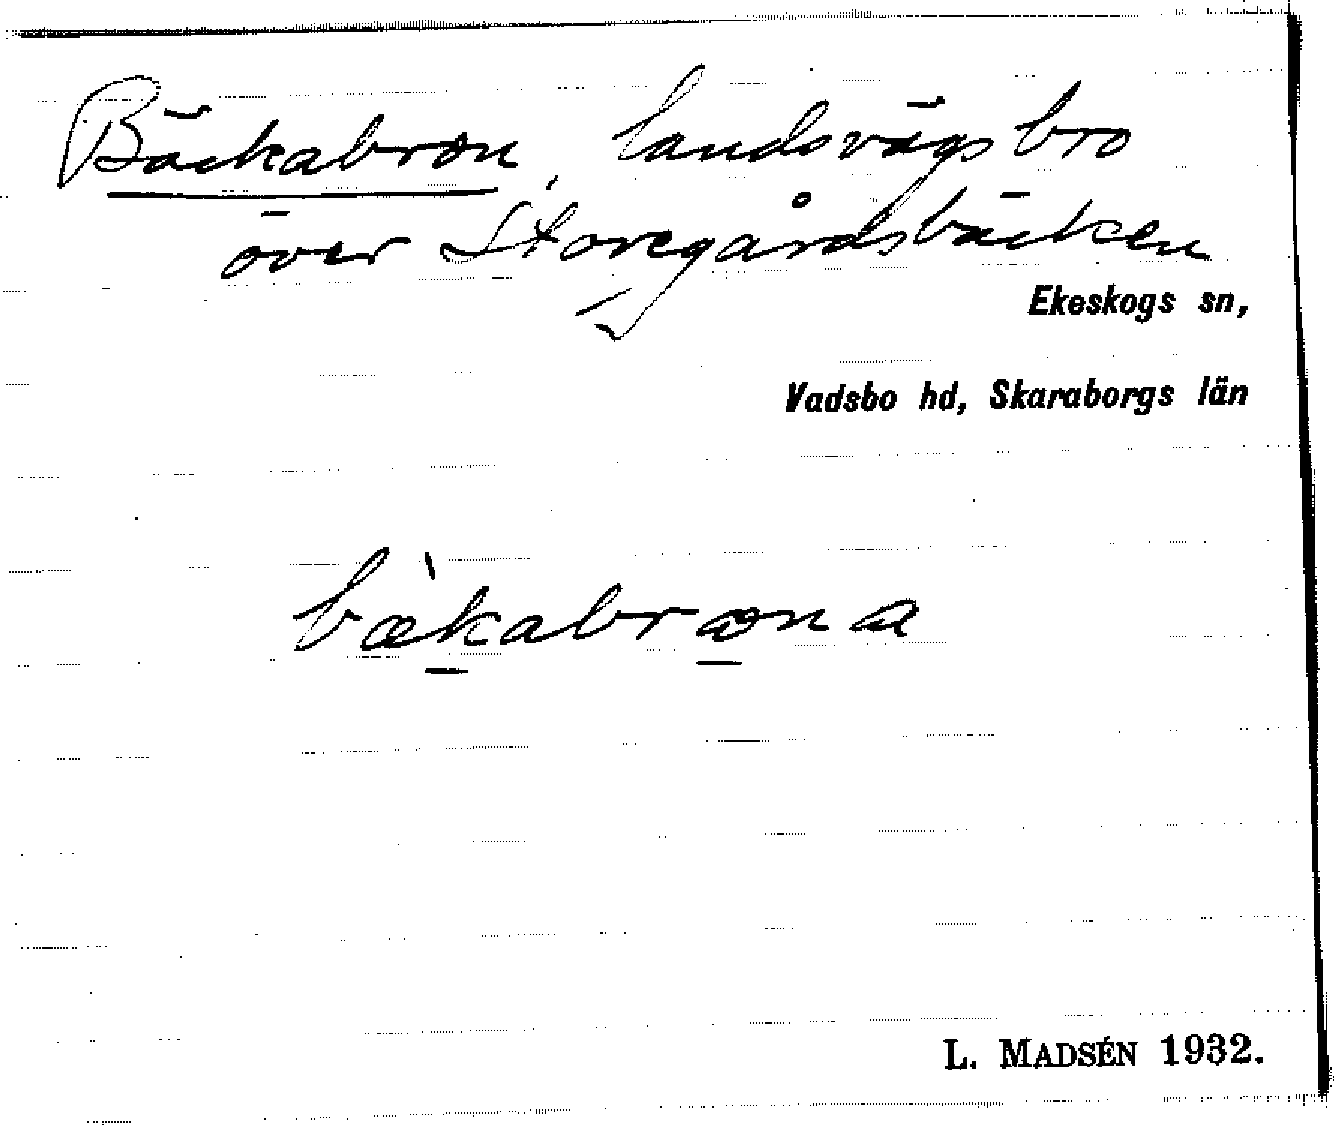 Bäckabron, landsvägsbro
över Storegårdsbäcken
Ekeskogs sn,
Vadsbo hd, Skaraborgs län
bæ̀kabrona
L. MADSÉN 1932.